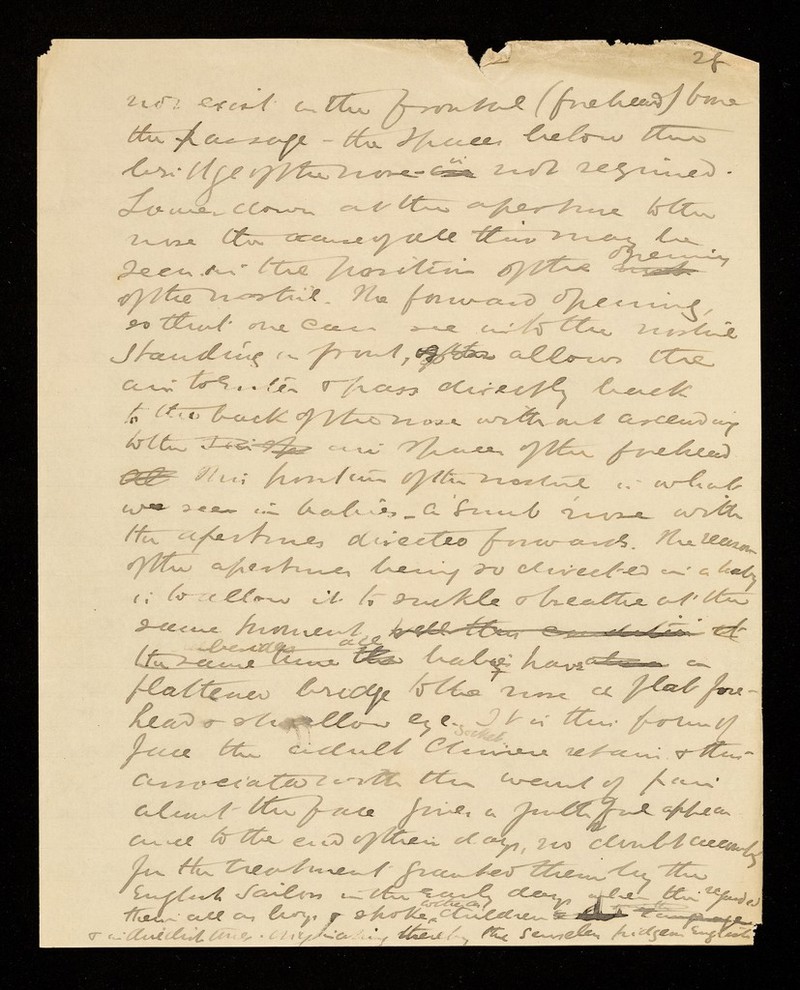 28
not exist in the frontal (forehead) bone
the passage - the spaces below the
bridge of the nose is not required.
Lower down at the aperture to the
nose the cause of all this may be
seen in the position of the opening
of the nostril. The forward opening,
so that one can see into the nostril
standing in front, allows the
air to enter & pass directly back
to the back of the nose without ascending
to the air spaces of the forehead
This position of the nostril is what
we see in babies - a snub nose with
the apertures directed forwards. The reason
of the apertures being so directed in a baby
is to allow it to suckle & breathe at the
same moment,
besides all
the same time babies have a
flattened bridge to the nose a flat fore-
head & shallow eye socket. It is this form of
face the adult Chinese retain & this
associated with the want of hair
about the face gives a youthful appear
ance to the end of their days, no doubt accounting
for the treatment granted them by the
English Sailors in the early days when they regarded
them all as boys & spoke to them as children
& thereby the senseless pidgeon English